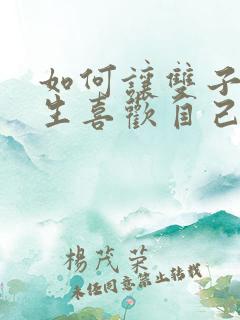 如何讓雙子
生喜歡自己
楊茂榮
未經同意禁止轉載